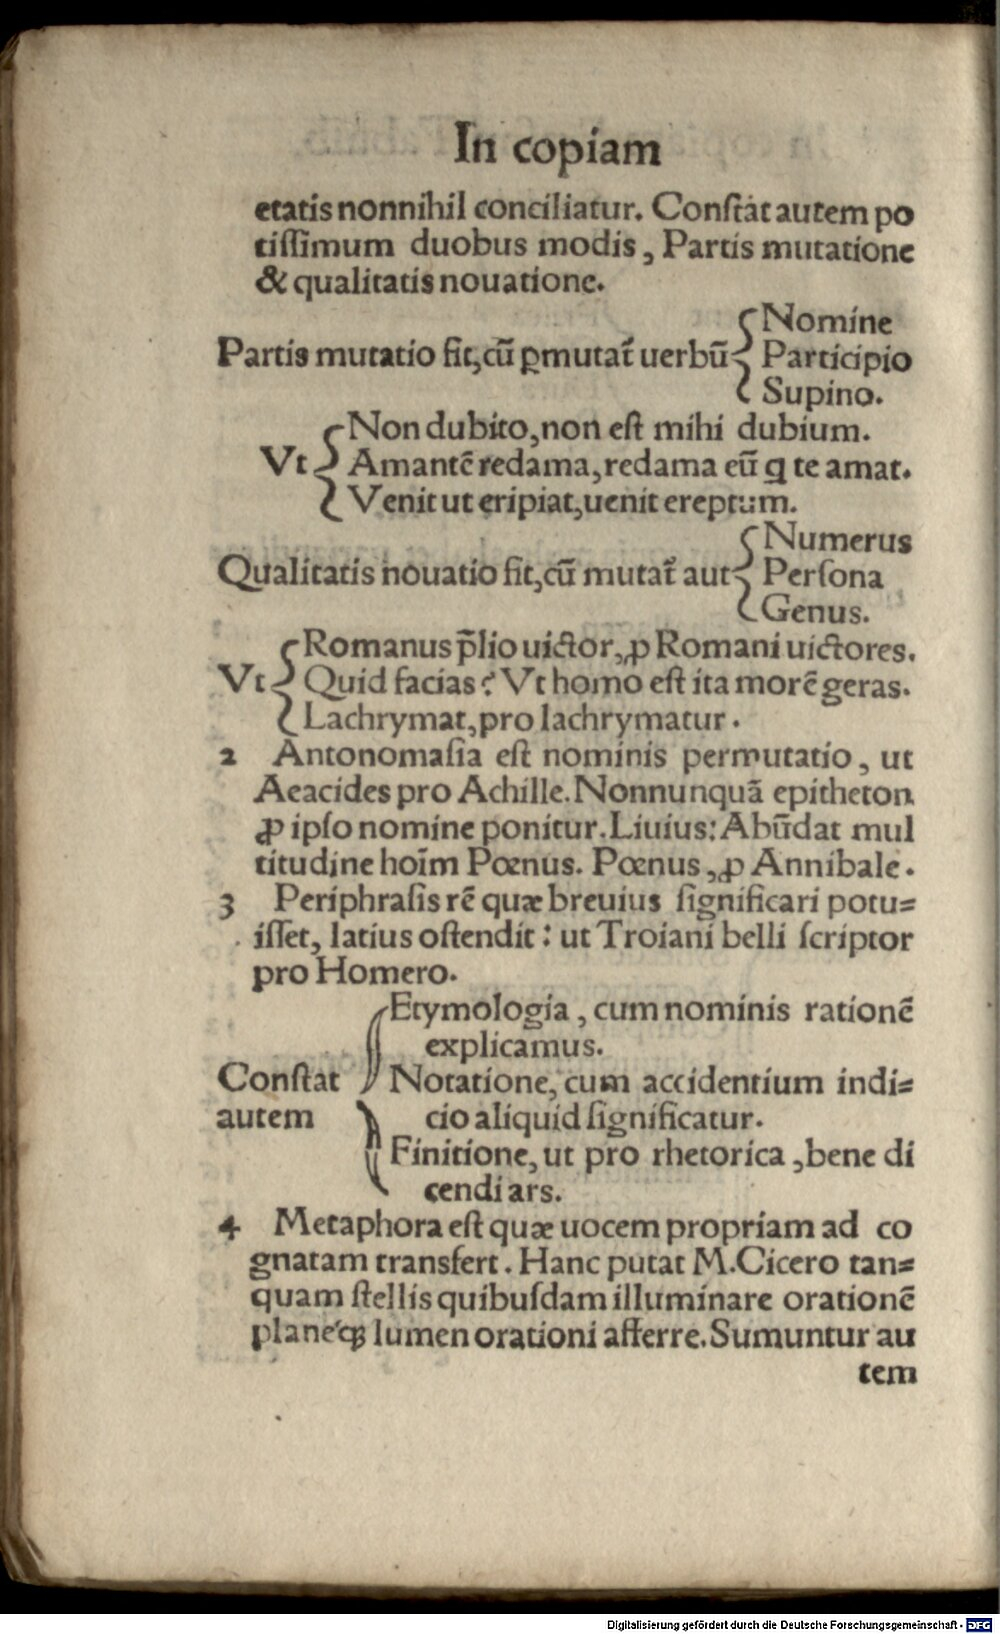 In copiam
etatis nonnihil conciliatur. Conſtat autem po
tiſſimum duobus modis, Partis mutatione
& qualitatis nouatione.
Nomine
Partis mutatio fit, cū ꝑmutat᷑ uerbū Participio
Supino.
Non dubito, non eſt mihi dubium.
Vt Amantē redama, redama eū ꝗ te amat.
Venit ut eripiat, uenit ereptum.
Numerus
Qualitatis nouatio fit, cū mutat᷑ aut Perſona
Genus.
Romanus p̄lio uictor, ꝓ Romani uictores.
Vt Quid facias? Vt homo eſt ita morē geras.
Lachrymat, pro lachrymatur.
2 Antonomaſia eſt nominis permutatio, ut
Aeacides pro Achille. Nonnunquā epitheton
ꝓ ipſo nomine ponitur. Liuius: Abūdat mul
titudine hoīm Pœnus. Pœnus, ꝓ Annibale.
3 Periphraſis rē quæ breuius ſignificari potu=
iſſet, latius oſtendit: ut Troiani belli ſcriptor
pro Homero.
Etymologia, cum nominis rationē
explicamus.
Conſtat Notatione, cum accidentium indi=
autem cio aliquid ſignificatur.
Finitione, ut pro rhetorica, bene di
cendi ars.
4 Metaphora eſt quæ uocem propriam ad co
gnatam transfert. Hanc putat M. Cicero tan=
quam ſtellis quibuſdam illuminare orationē
planéqꝫ lumen orationi afferre. Sumuntur au
tem
Digitalisierung gefördert durch die Deutsche Forschungsgemeinschaft - DFG